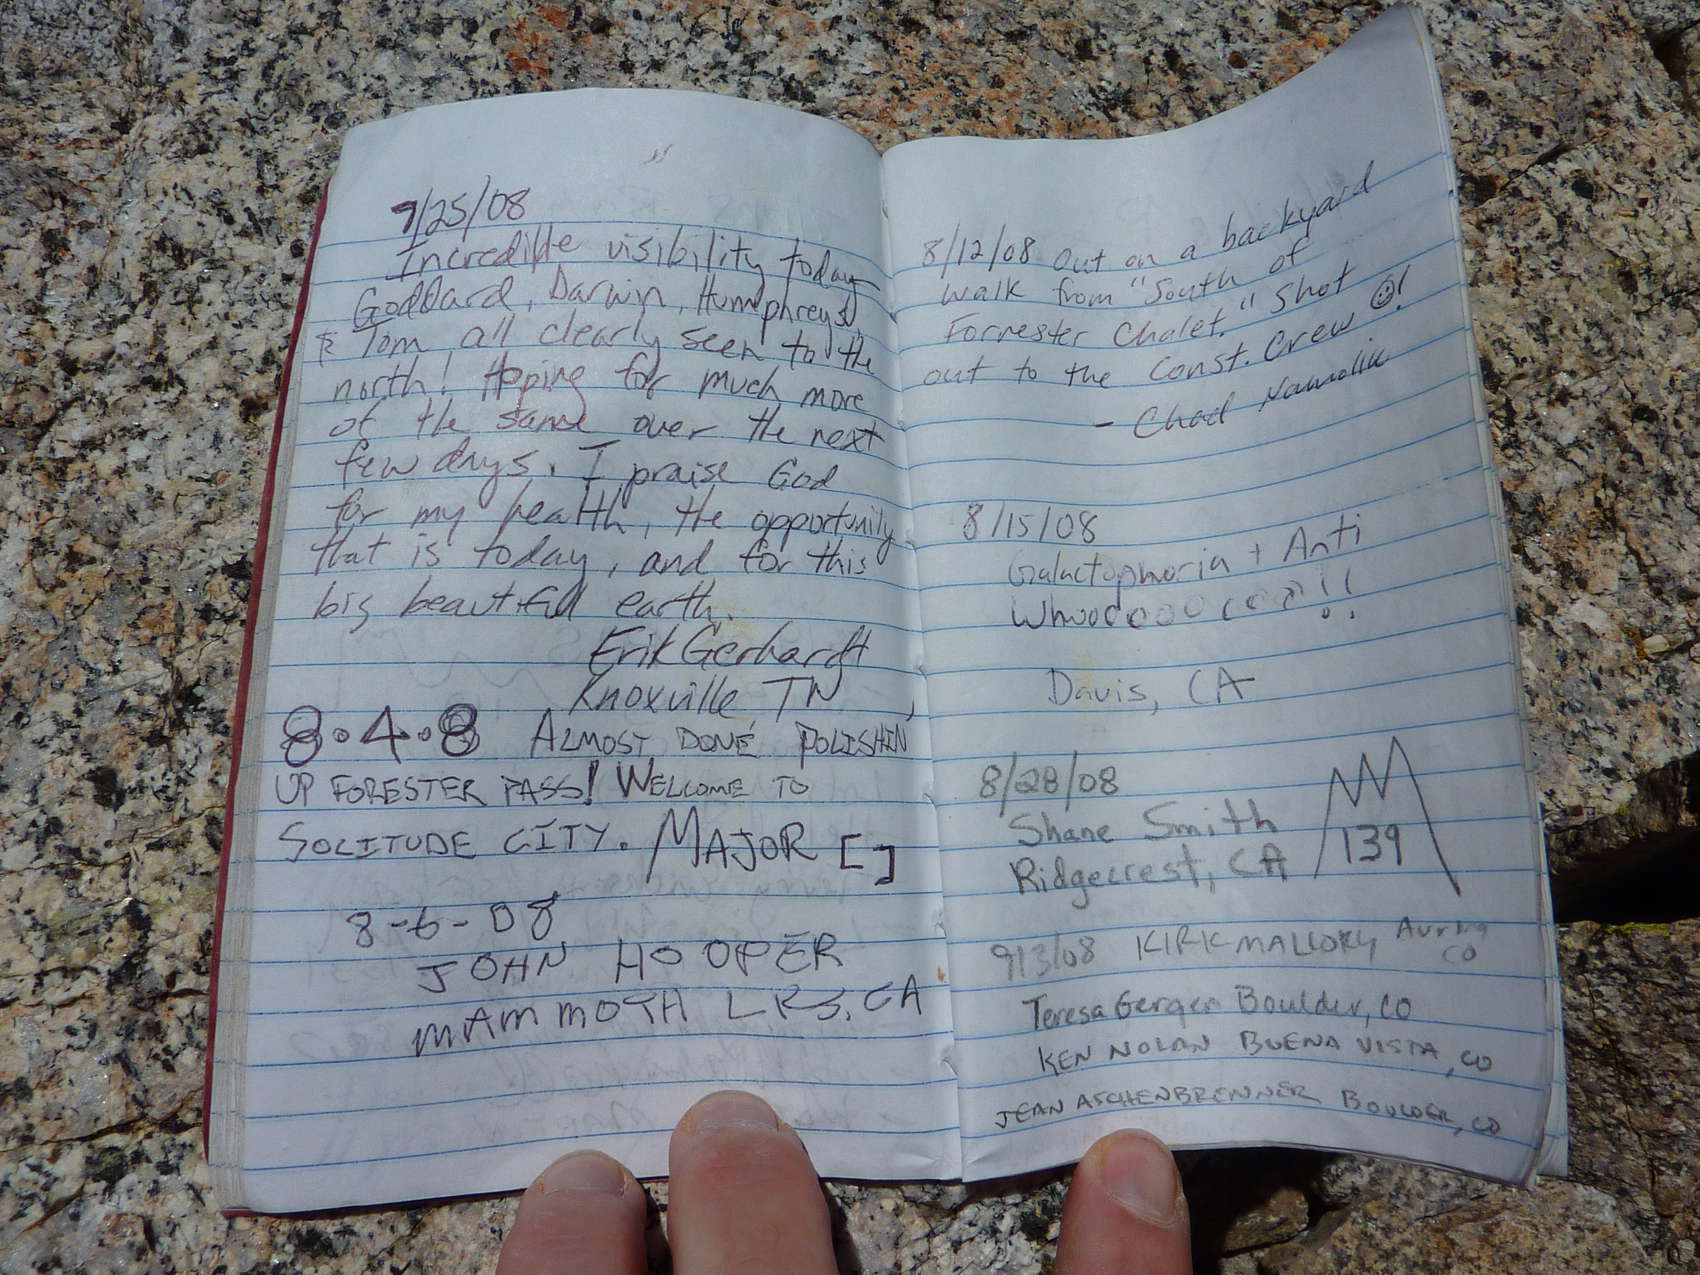 9/25/08
Incredible visibility today
Goddard, Darwin, Humphreys,
& Tom all clearly seen to the
north! Hoping for much more
of the same over the next
few days. I praise God
for my health, the opportunity
that is today, and for this
big beautiful earth.
Erik Gerhardt
Knoxville, TN
8.4.8 ALMOST DONE POLISHIN
UP FORESTER PASS! WELCOME TO
SOLITUDE CITY. MAJOR []
8-6-08
JOHN HOOPER
MAMMOTH LKS, CA
8/12/08 out on a backyard
walk from "South of
Forrester Chalet." Shot
out to the Const. Crew ☺!
- Chad
8/15/08
Galactophoria + Anti
Davis, CA
8/28/08
Shane Smith
Ridgecrest, CA
139
9/3/08 KIRK MALLORY
CO
Teresa Gergen Boulder, CO
KEN NOLAN BUENA VISTA, CO
JEAN ASCHENBRENNER BOULDER, CO